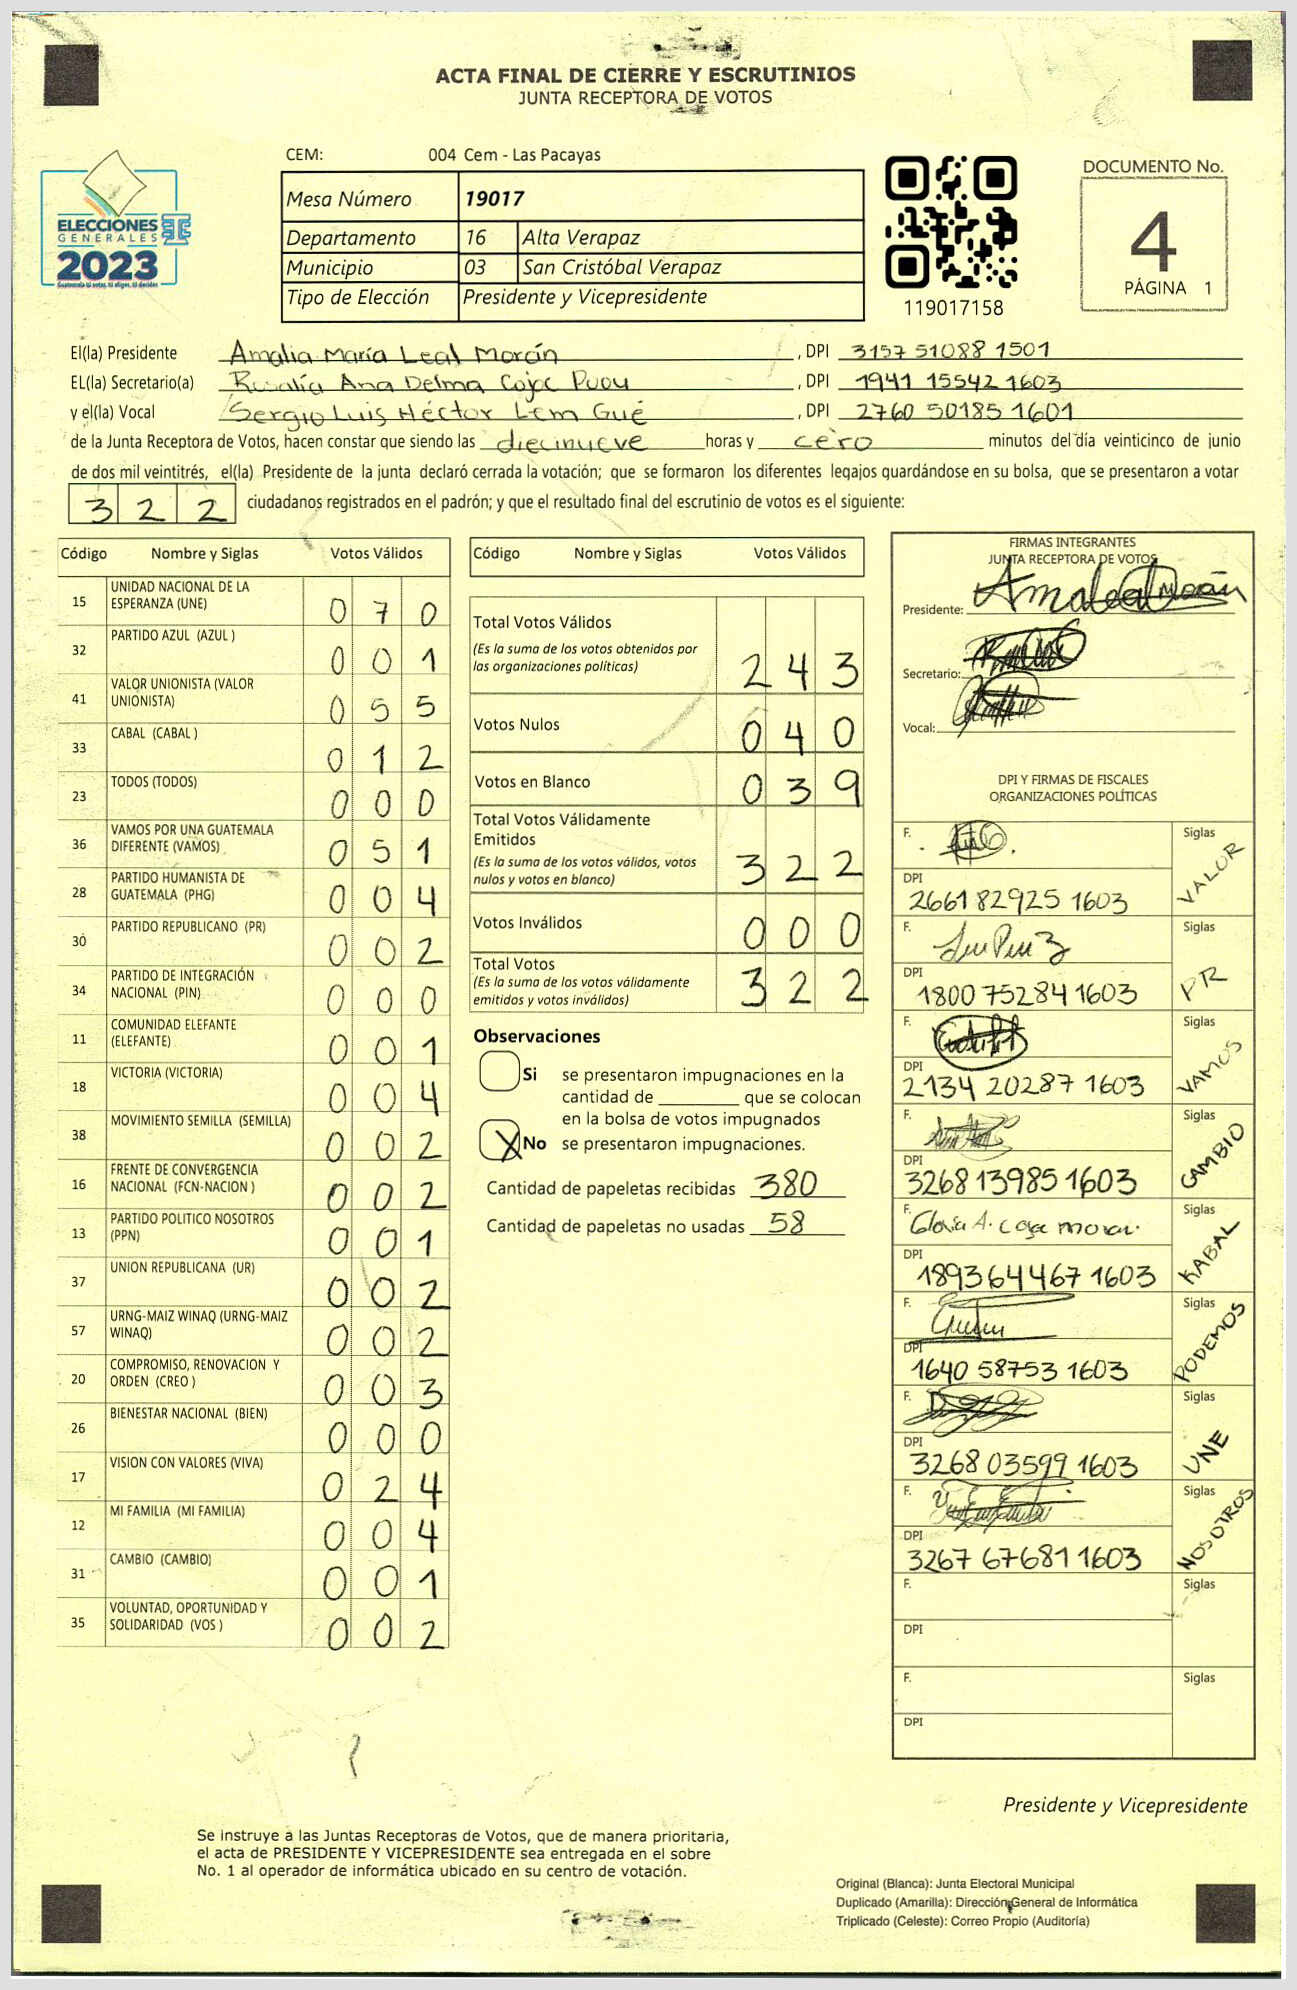 ACTA FINAL DE CIERRE Y ESCRUTINIOS
JUNTA RECEPTORA DE VOTOS
CEM: 004 Cem - Las Pacayas
ELECCIONES
GENERALES
2023
Guatemala tú votas, tú eliges, tú decides
Mesa Número 19017
Departamento 16 Alta Verapaz
Municipio 03 San Cristóbal Verapaz
Tipo de Elección Presidente y Vicepresidente
119017158
DOCUMENTO No.
4
PÁGINA 1
El(la) Presidente Amalia María Leal Morán , DPI 3157 51088 1501
EL(la) Secretario(a) Rosalía Ana Delma Cojoc Puou , DPI 1941 15542 1603
y el(la) Vocal Sergio Luis Héctor Lem Gué , DPI 2760 50185 1601
de la Junta Receptora de Votos, hacen constar que siendo las diecinueve horas y cero minutos del día veinticinco de junio
de dos mil veintitrés, el(la) Presidente de la junta declaró cerrada la votación; que se formaron los diferentes legajos guardándose en su bolsa, que se presentaron a votar
322 ciudadanos registrados en el padrón; y que el resultado final del escrutinio de votos es el siguiente:
Código Nombre y Siglas Votos Válidos
15 UNIDAD NACIONAL DE LA ESPERANZA (UNE) 070
32 PARTIDO AZUL (AZUL ) 001
41 VALOR UNIONISTA (VALOR UNIONISTA) 055
33 CABAL (CABAL ) 012
23 TODOS (TODOS) 000
36 VAMOS POR UNA GUATEMALA DIFERENTE (VAMOS) 051
28 PARTIDO HUMANISTA DE GUATEMALA (PHG) 004
30 PARTIDO REPUBLICANO (PR) 002
34 PARTIDO DE INTEGRACIÓN NACIONAL (PIN) 000
11 COMUNIDAD ELEFANTE (ELEFANTE) 001
18 VICTORIA (VICTORIA) 004
38 MOVIMIENTO SEMILLA (SEMILLA) 002
16 FRENTE DE CONVERGENCIA NACIONAL (FCN-NACION ) 002
13 PARTIDO POLITICO NOSOTROS (PPN) 001
37 UNION REPUBLICANA (UR) 002
57 URNG-MAIZ WINAQ (URNG-MAIZ WINAQ) 002
20 COMPROMISO, RENOVACION Y ORDEN (CREO ) 003
26 BIENESTAR NACIONAL (BIEN) 000
17 VISION CON VALORES (VIVA) 024
12 MI FAMILIA (MI FAMILIA) 004
31 CAMBIO (CAMBIO) 001
35 VOLUNTAD, OPORTUNIDAD Y SOLIDARIDAD (VOS ) 002
Código Nombre y Siglas Votos Válidos
Total Votos Válidos 243
(Es la suma de los votos obtenidos por
las organizaciones políticas)
Votos Nulos 040
Votos en Blanco 039
Total Votos Válidamente
Emitidos 322
(Es la suma de los votos válidos, votos
nulos y votos en blanco)
Votos Inválidos 000
Total Votos 322
(Es la suma de los votos válidamente
emitidos y votos inválidos)
Observaciones
Si se presentaron impugnaciones en la
cantidad de ________ que se colocan
en la bolsa de votos impugnados
X No se presentaron impugnaciones.
Cantidad de papeletas recibidas 380
Cantidad de papeletas no usadas 58
FIRMAS INTEGRANTES
JUNTA RECEPTORA DE VOTOS
Presidente:
Secretario:
Vocal:
DPI Y FIRMAS DE FISCALES
ORGANIZACIONES POLÍTICAS
F. Siglas VALOR
DPI 2661 82925 1603
F. Siglas PR
DPI 1800 75284 1603
F. Siglas VAMOS
DPI 2134 20287 1603
F. Siglas CAMBIO
DPI 3268 13985 1603
F. Gloria A. Siglas KABAL
DPI 1893 64467 1603
F. Siglas PODEMOS
DPI 1640 58753 1603
F. Siglas UNE
DPI 3268 03599 1603
F. Siglas NOSOTROS
DPI 3267 67681 1603
F. Siglas
DPI
F. Siglas
DPI
Presidente y Vicepresidente
Se instruye a las Juntas Receptoras de Votos, que de manera prioritaria,
el acta de PRESIDENTE Y VICEPRESIDENTE sea entregada en el sobre
No. 1 al operador de informática ubicado en su centro de votación.
Original (Blanca): Junta Electoral Municipal
Duplicado (Amarilla): Dirección General de Informática
Triplicado (Celeste): Correo Propio (Auditoría)